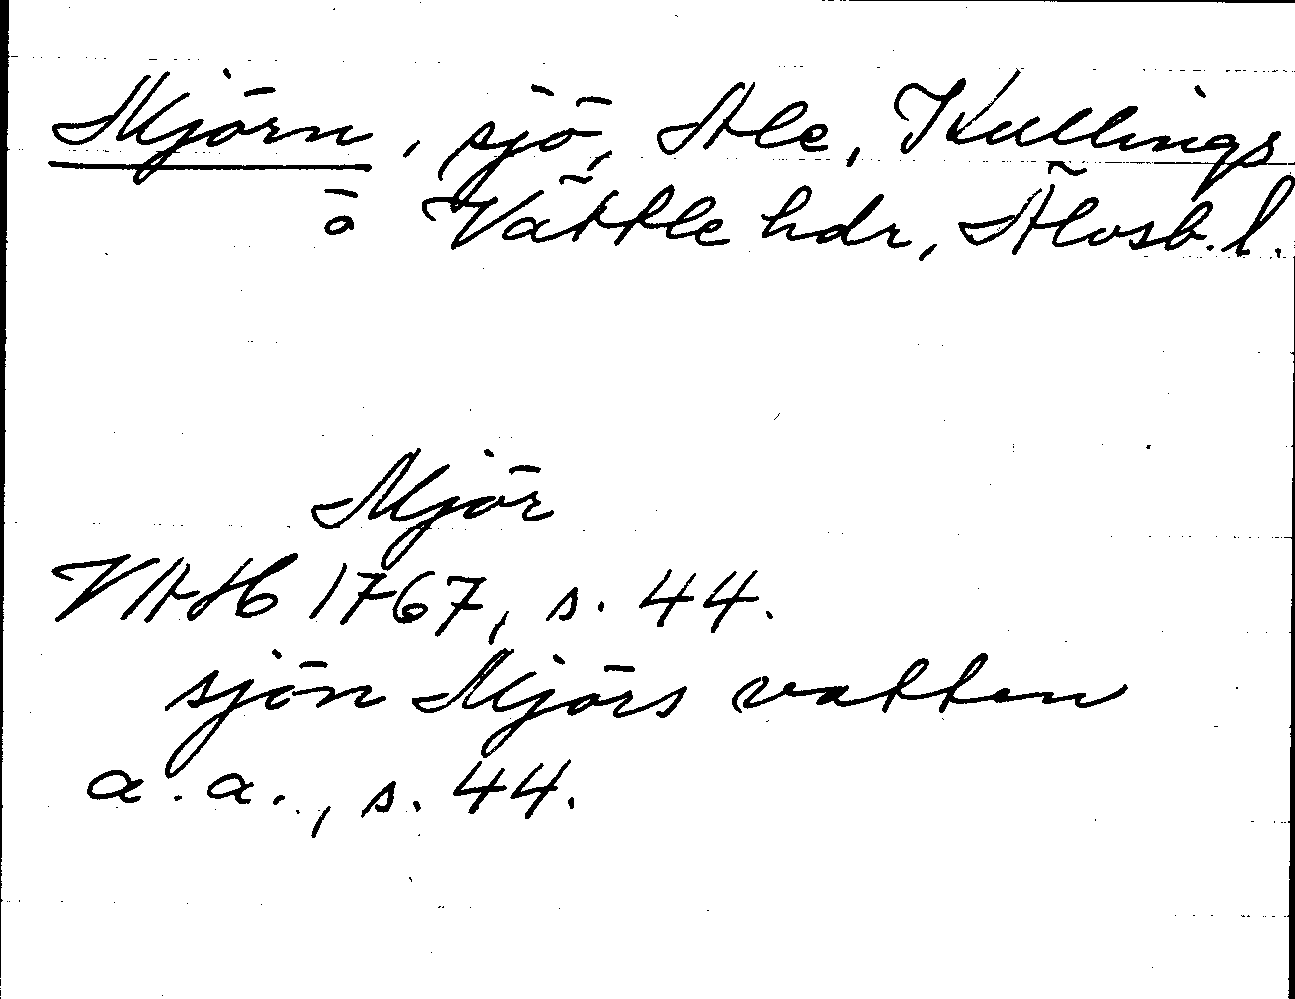 Mjörn, sjö, Ale, Kullings
o Vättle hdr, Älvsb. l.
Mjör
VAH 1767, s. 44.
sjön Mjörs vatten
a.a., s. 44.